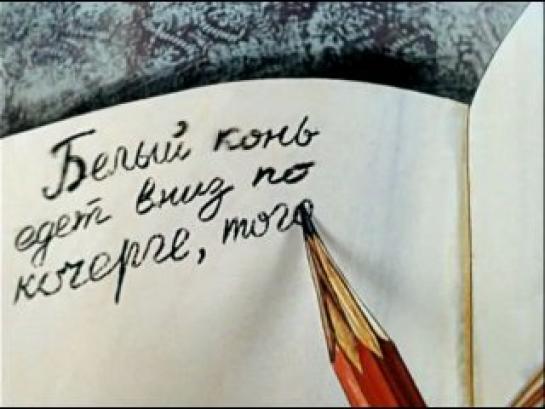 Белый конь
едет вниз по
кочерге, того